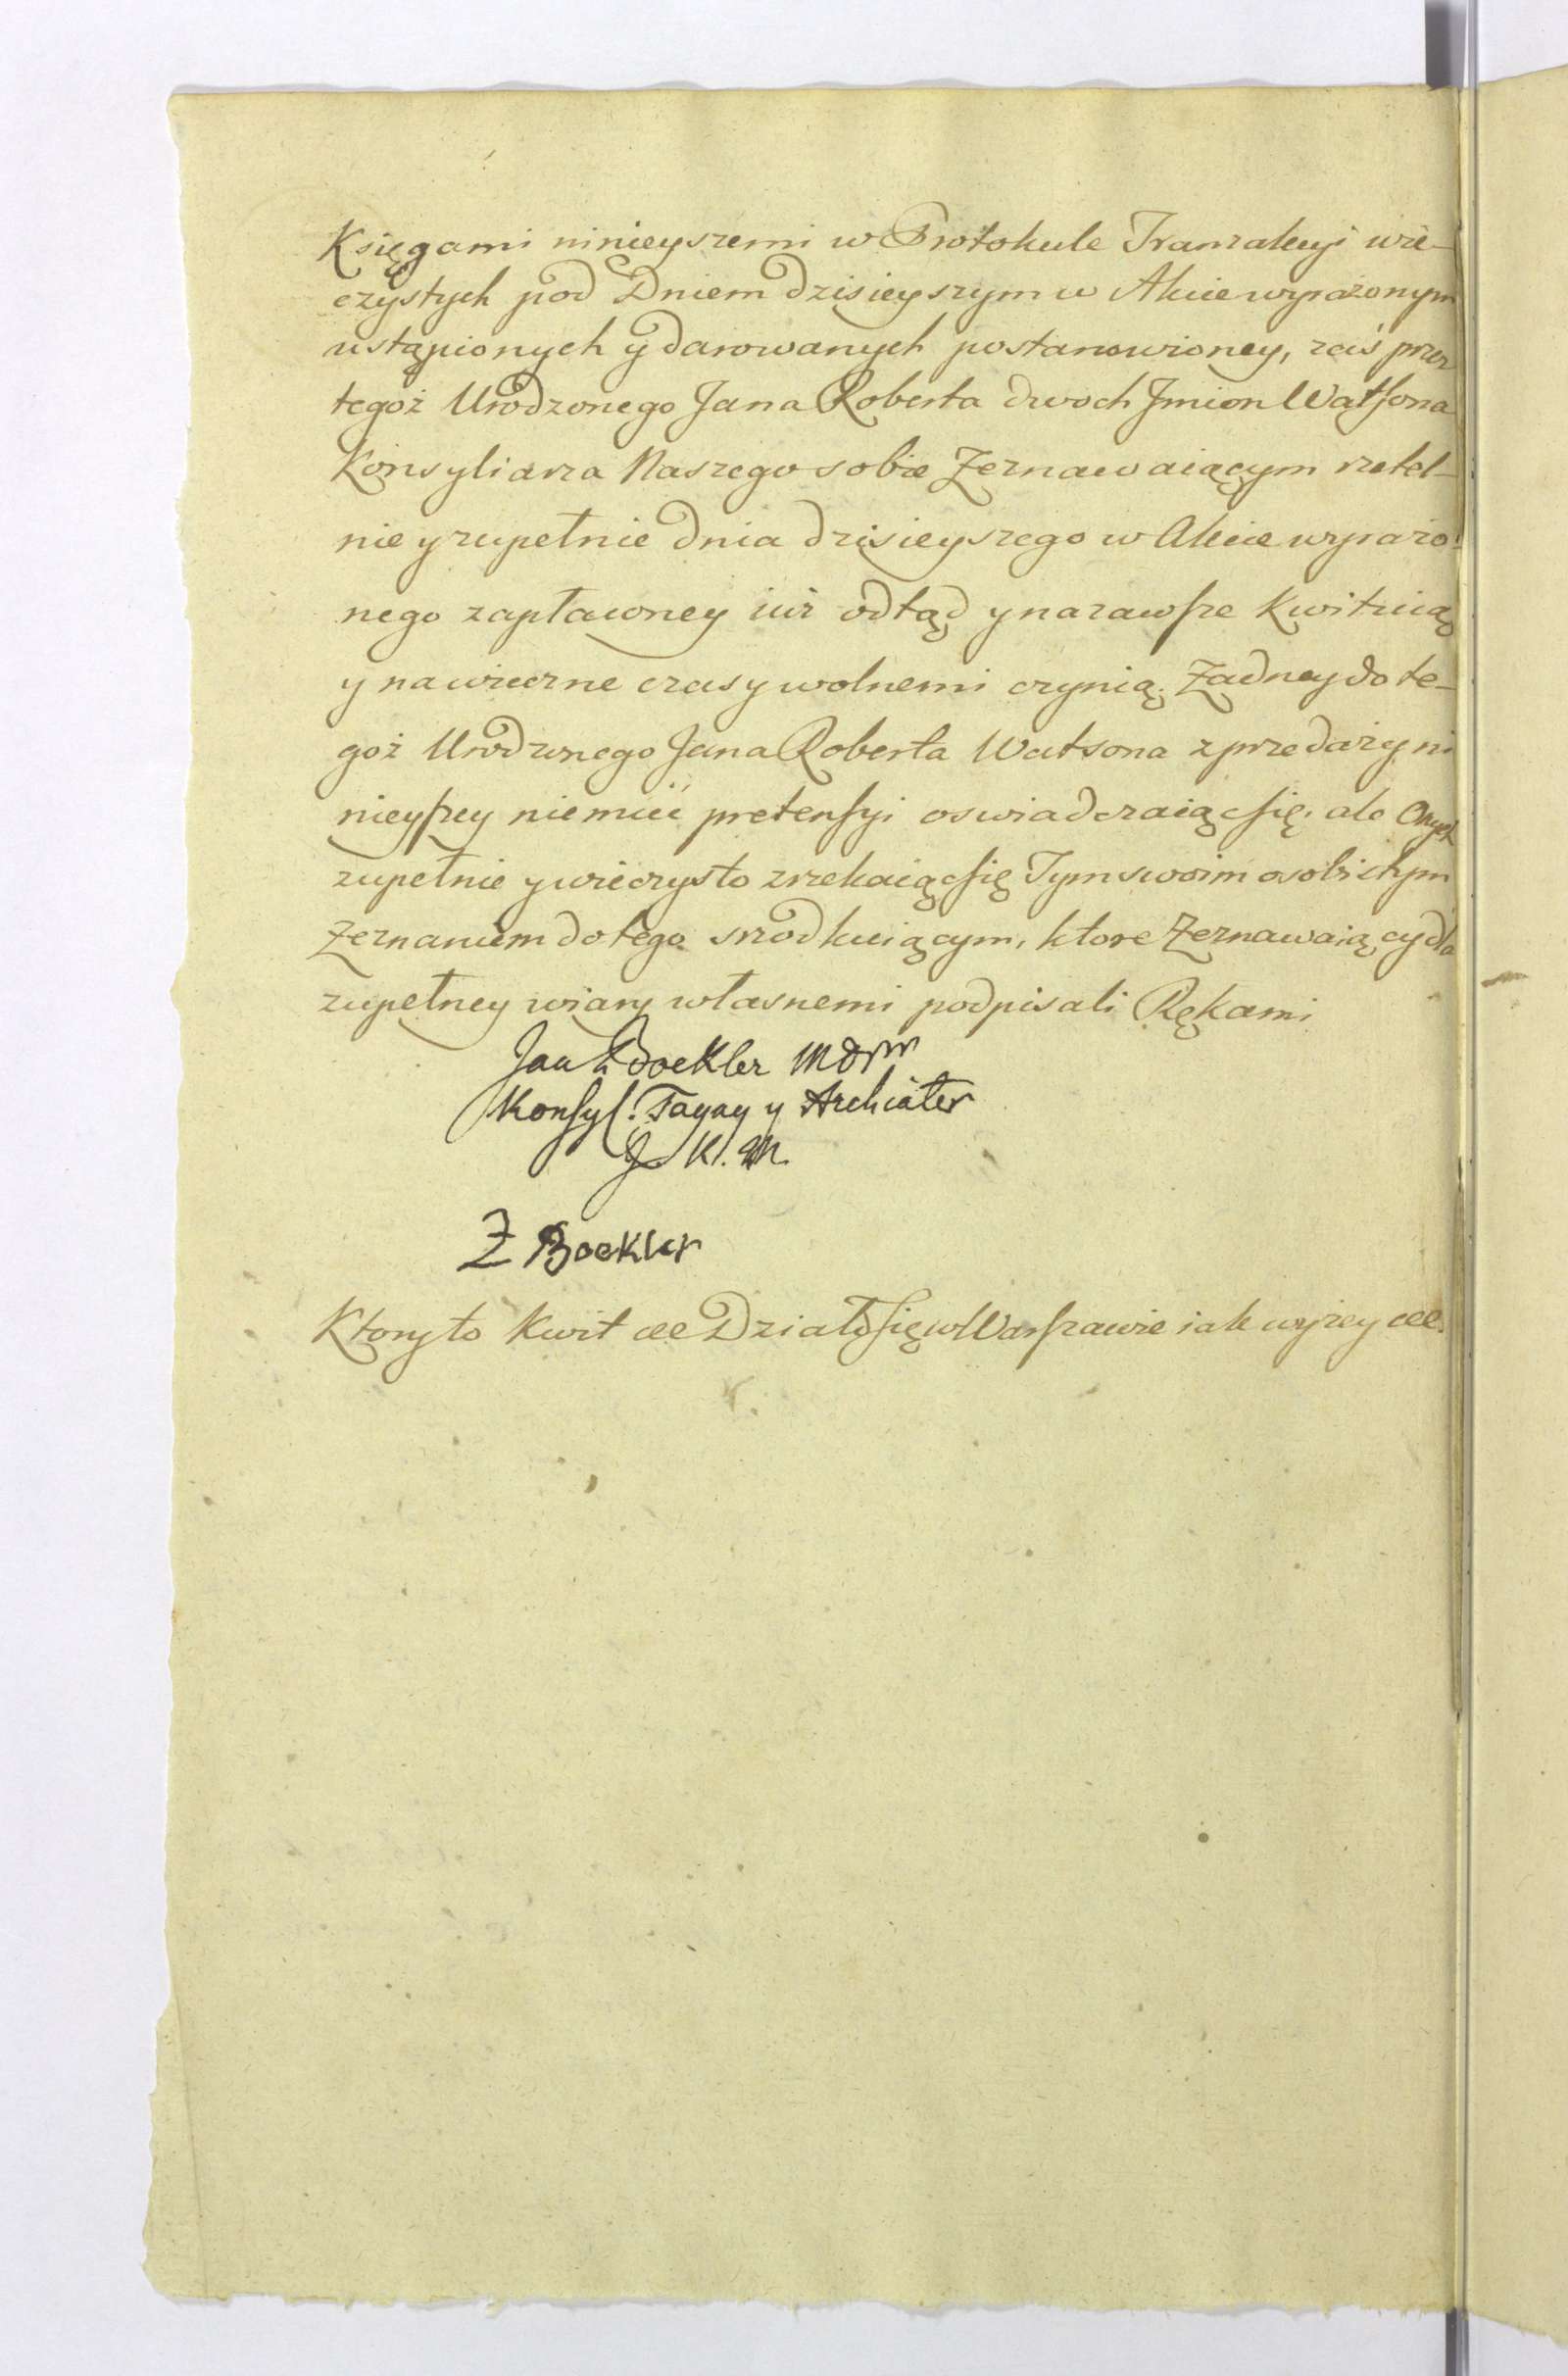 Księgami ninieyszemi w Protokule Tranzakcyi wie-
czystych pod Dniem dzisieyszym w Akcie wyrażonym
ustąpionych y darowanych postanowioney, zaś przez
tegoż Urodzonego Jana Roberta dwoch Jmion Watsona
Konsyliarza Naszego sobie Zeznawaiącym rzetel-
nie y zupełnie dnia dzisieyszego w Akcie wyrażo-
nego zapłaconey iuż odtąd y nazawsze Kwituią
y na wieczne czasy wolnemi czynią. Żadney do te-
goż Urodzonego Jana Roberta Watsona z przedaży ni
nieyszey niemieć pretensyi oswiadczaiąc się, ale Onych
zupełnie y wieczysto zrzekaiąc się Tym swoim osobistym
Zeznaniem do tego srzodkuiącym, ktore Zeznawaiący dla
zupełney wiary własnemi podpisali Rękami
Jan Boekler
Konsyl. Tayny y Archiater
J. K. M.
Z Boekler
Ktory to Kwit &c Działo się w Warszawie iak wyżey &c.